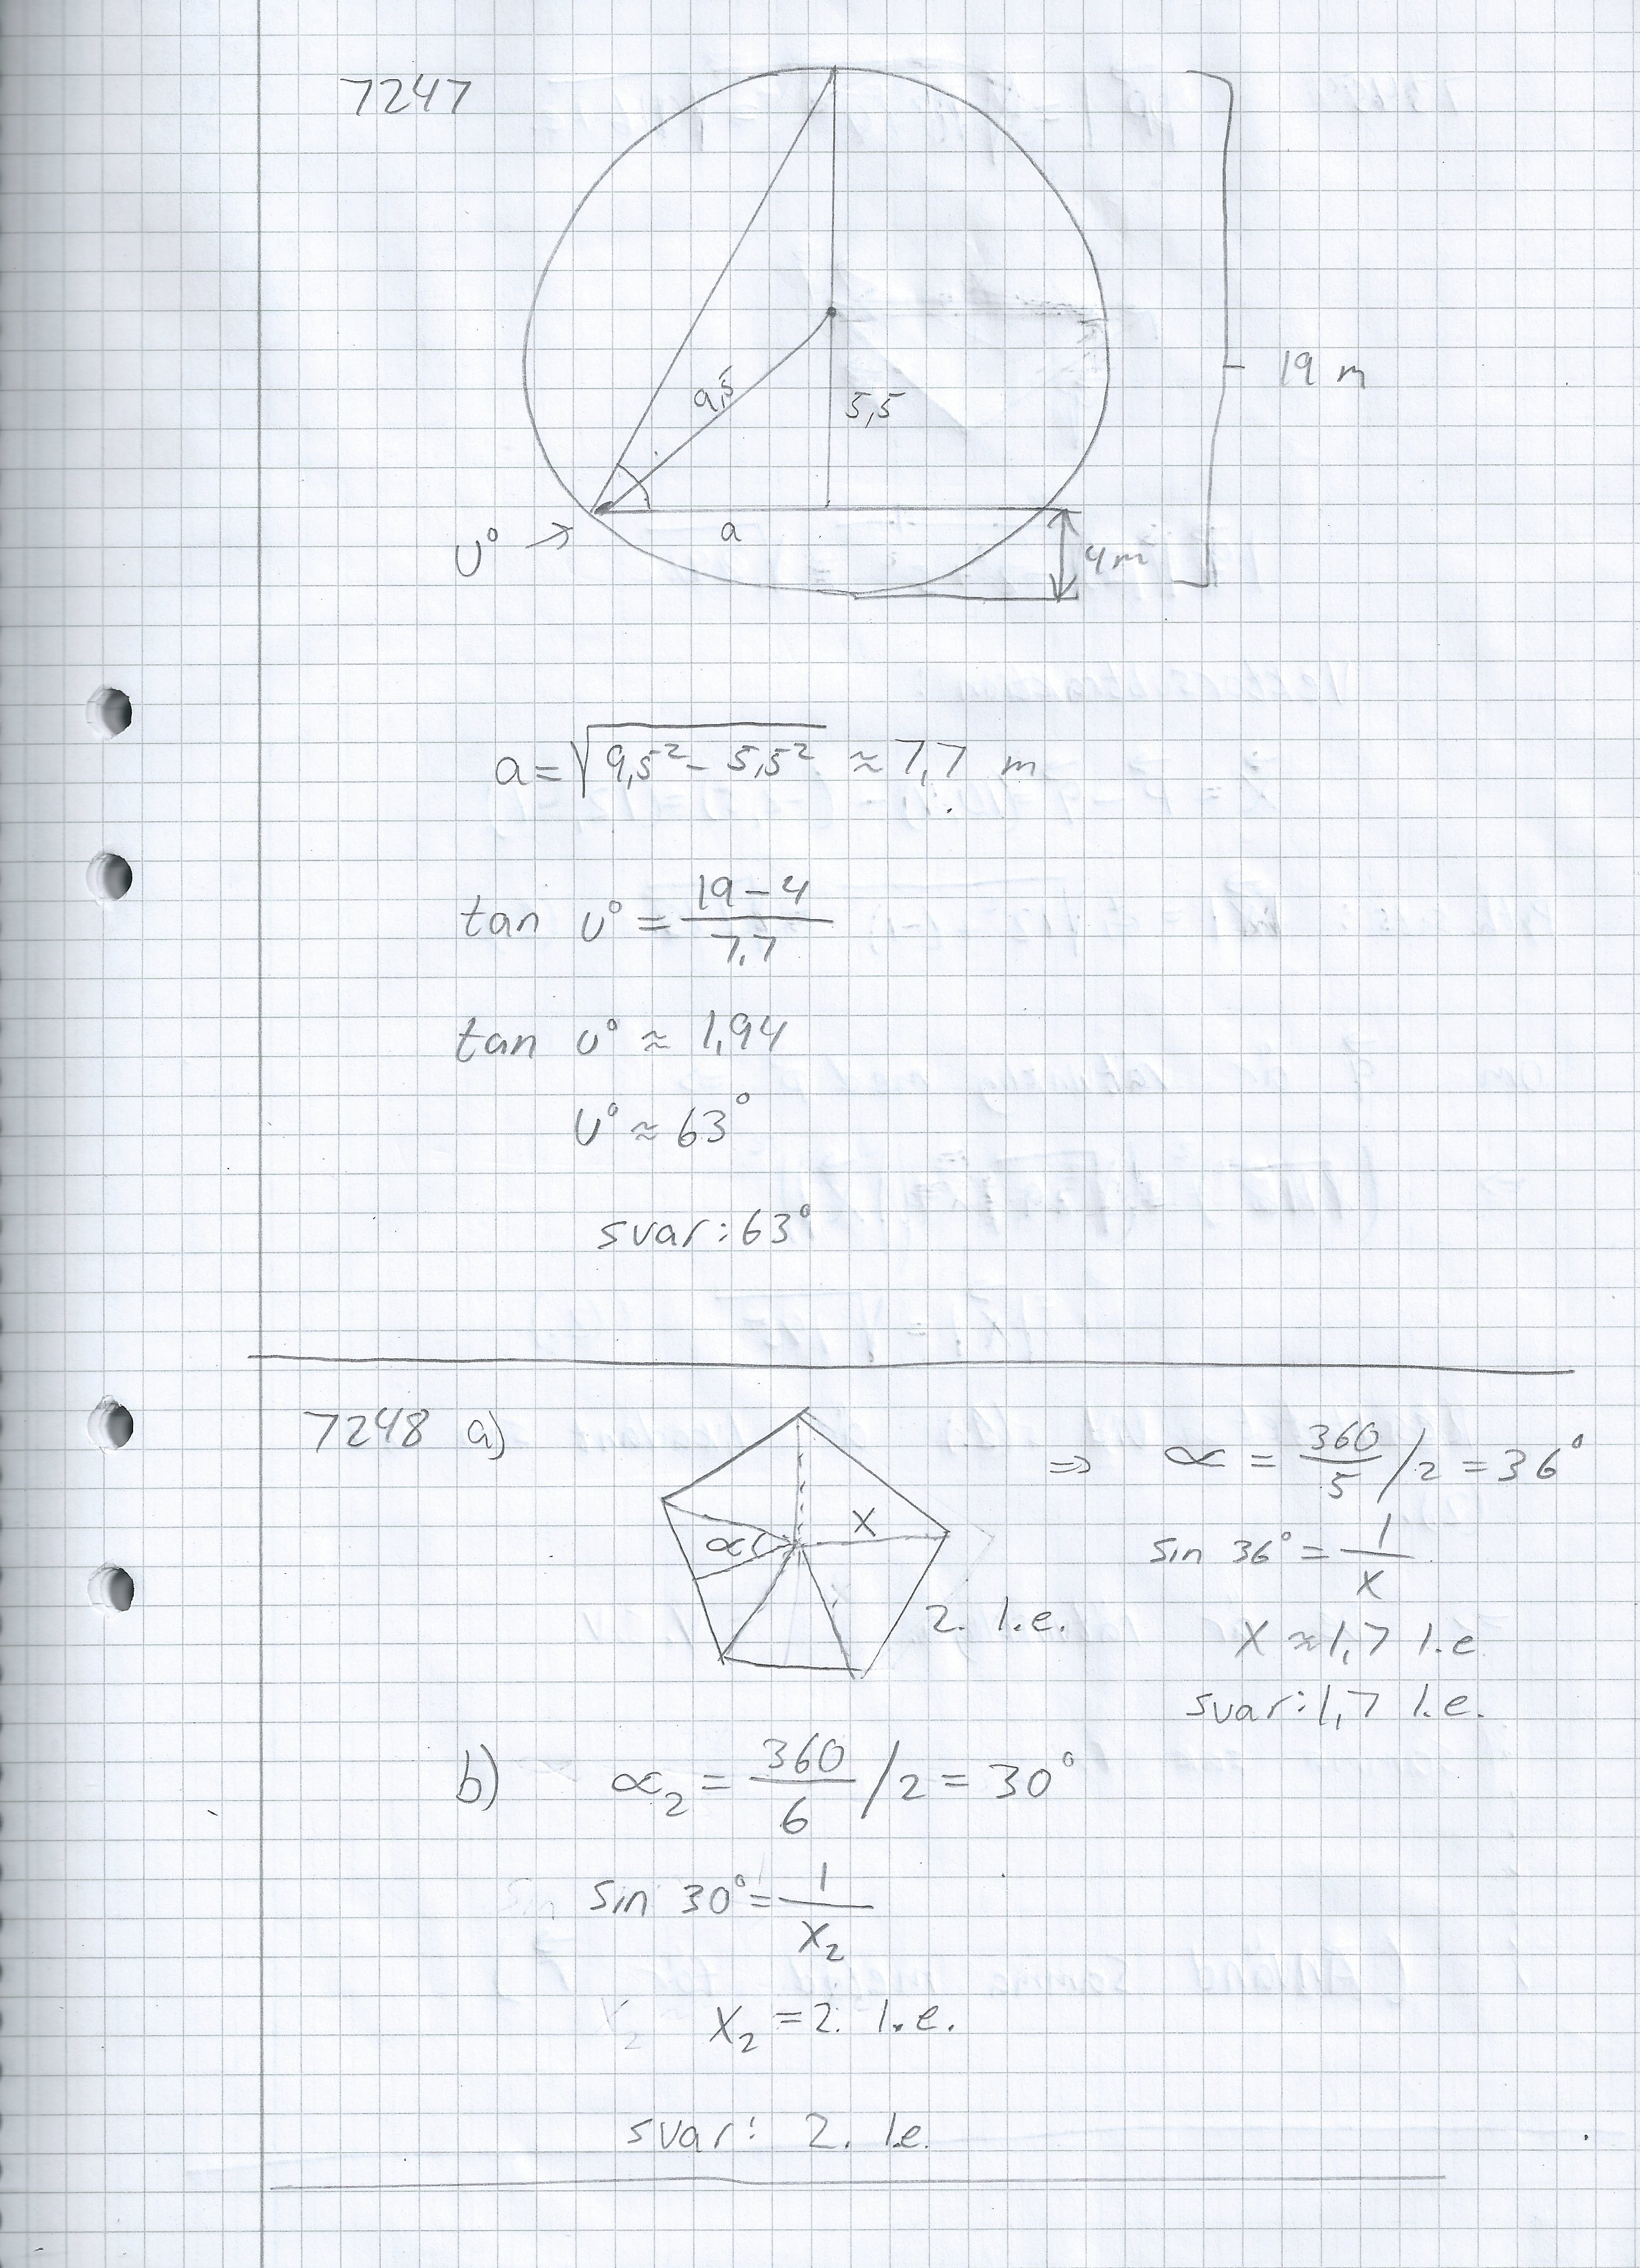 7247
19 m
9,5
5,5
a
U° →
4m
a = √9,5² - 5,5² ≈ 7,7 m
tan U° = 19 - 4 / 7,7
tan U° ≈ 1,94
U° ≈ 63°
svar: 63°
7248 a)
⇒ ∝ = 360/5 /2 = 36°
x
∝
sin 36° = 1/x
2. l.e.
x ≈ 1,7 l.e.
svar: 1,7 l.e.
b) ∝₂ = 360/6 /2 = 30°
sin 30° = 1/x₂
x₂ = 2. l.e.
svar: 2. l.e.